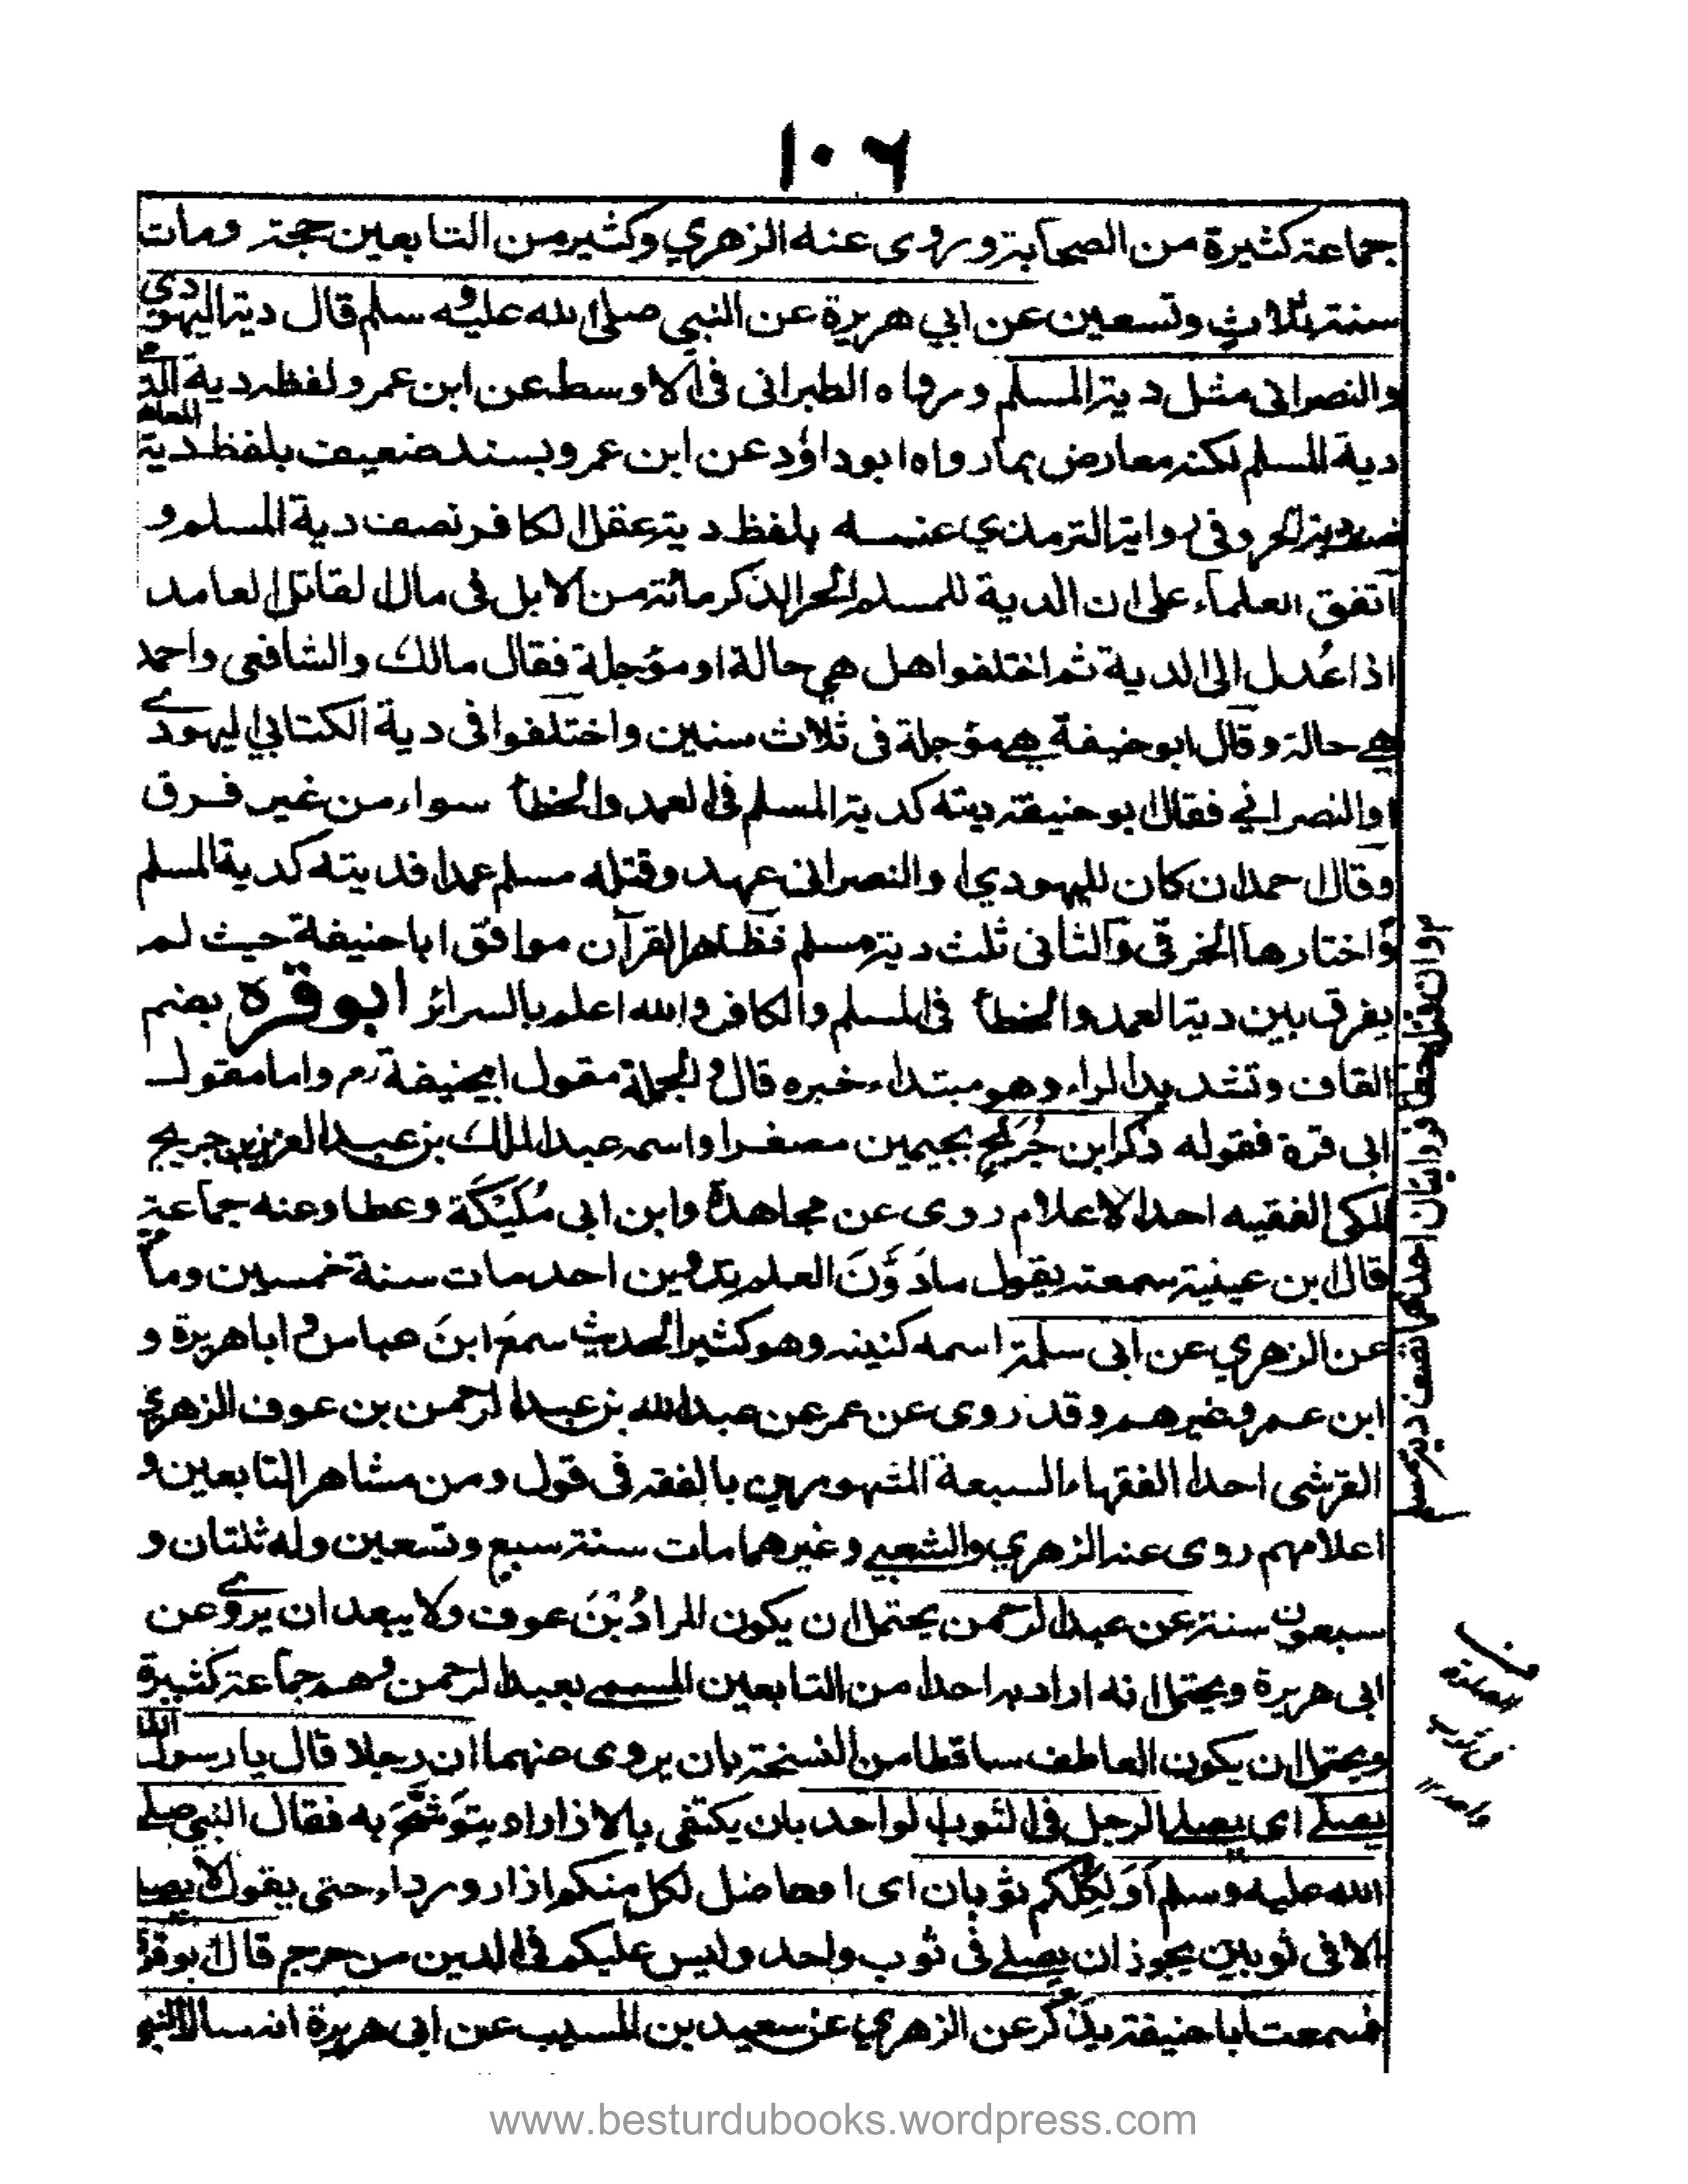 ۱۰۶
جماعة كثيرة من الصحابة وروى عنه الزهري وكثير من التابعين حجة ومات
سنة ثلاث وتسعين عن ابي هريرة عن النبي صلى الله عليه وسلم قال دية اليهودي
والنصراني مثل دية المسلم ورواه الطبراني في الاوسط عن ابن عمر ولفظه دية الذمي
دية المسلم لكنه معارض بما رواه ابو داؤد عن ابن عمرو بسند ضعيف بلفظ دية المعاهد
نصف دية الحر وفي رواية الترمذي عنه بلفظ دية عقل الكافر نصف دية المسلم و
اتفق العلماء على ان الدية للمسلم الحر الذكر مائة من الابل في مال القاتل العامد
اذا عُدل الى الدية ثم اختلفوا هل هي حالة او مؤجلة فقال مالك والشافعي واحمد
هي حالة وقال ابو حنيفة هي مؤجلة في ثلاث سنين واختلفوا في دية الكتابي اليهودي
او النصراني فقال ابو حنيفة ديته كدية المسلم في العمد والخطأ سواء من غير فرق
وقال احمد ان كان لليهودي او النصراني عهد وقتله مسلم عمدا فديته كدية المسلم
واختارها الخرقي والثاني ثلث دية مسلم فظاهر القرآن موافق ابا حنيفة حيث لم
يفرق بين دية العمد والخطأ في المسلم والكافر والله اعلم بالسرائر ابو قرة بضم
القاف وتشديد الراء وهو مبتداء خبره قال والجملة مقول ابيحنيفة رم واما مقول
ابي قرة فقوله ذكر ابن جُرَيج بجيمين مصغرا واسمه عبد الملك بن عبد العزيز بن جريج
المكي الفقيه احد الاعلام روى عن مجاهد وابن ابي مُلَيْكَة وعطا وعنه جماعة
قال ابن عيينة سمعته يقول ما دَوَّنَ العلم تدوين احد مات سنة خمسين ومائة
عن الزهري عن ابي سلمة اسمه كنيته وهو كثير الحديث سمعَ ابنَ عباس و ابا هريرة و
ابن عمر وغيرهم وقد روى عن عمر عن عبد الله بن عبد الرحمن بن عوف الزهري
القرشي احد الفقهاء السبعة المشهورين بالفقه في قول ومن مشاهر التابعين و
اعلامهم روى عنه الزهري والشعبي وغيرهما مات سنة سبع وتسعين وله ثلتان و
سبعون سنة عن عبد الرحمن يحتمل ان يكون المرادُ بْنَ عوف ولا يبعد ان يروي عن
ابي هريرة ويحتمل انه اراد به احدا من التابعين المسمى بعبد الرحمن وهم جماعة كثيرة
ويحتمل ان يكون العاطف ساقطا من النسخة بان يروى عنهما ان رجلا قال يا رسول الله
يصلي اي يصلي الرجل في الثوب الواحد بان يكتفي بالازار او يتوشَّحَ به فقال النبي صلى
الله عليه وسلم اَوَ لكلكم ثوبان اى ا وحاصل لكل منكم ازار ورداء حتى يقول لا يصلي
الا في ثوبين يجوز ان يصلي في ثوب واحد وليس عليكم في الدين من حرج قال ابو قرة
فسمعت ابا حنيفة يذكر عن الزهري عن سعيد بن المسيب عن ابي هريرة انه سال النبي
وان قتل خطأ فروايتان احداهما نصف دية مسلم
الصلوة
في ثوب
واحد
www.besturdubooks.wordpress.com